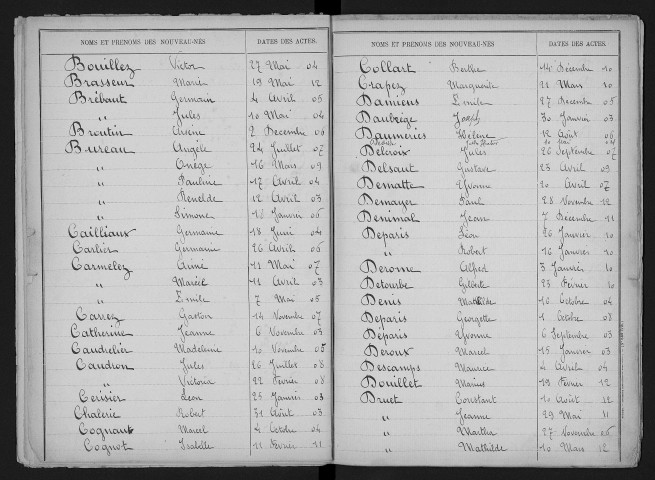 NOMS ET PRENOMS DES NOUVEAU-NÉS DATES DES ACTES.
Bouillez Victor 27 Mai 04
Brasseur Marie 19 Mai 12
Brébant Germain 4 Avril 05
" Jules 10 Mai 04
Broutin Arsène 2 Decembre 06
Bureau Angèle 24 Juillet 07
" Onège 16 Mars 09
" Pauline 17 Avril 04
" Renelde 12 Avril 03
" Simone 16 Janvier 06
Cailliaux Germaine 18 Juin 04
Carlier Germaine 26 Avril 06
Carmelez Aimé 11 Mai 07
" Marcel 11 Avril 03
" Emile 7 Mai 05
Carrez Gaston 14 Novembre 07
Catherine Jeanne 6 Novembre 03
Caudrelier Madeleine 10 Novembre 05
Caudron Jules 26 Juillet 08
" Victoria 22 Février 08
Cerisier Léon 25 Janvier 03
Chalerie Robert 31 Août 03
Cognaux Marcel 4 Octobre 04
Cognot Isabelle 11 Février 11
NOMS ET PRÉNOMS DES NOUVEAU-NÉS DATES DES ACTES.
Collart Berthe 14 Décembre 10
Crapez Marguerite 21 Mars 10
Damiens Emile 27 Decembre 05
Daubrège Joseph 30 Janvier 03
Daumeries Hélène 12 Août 06
Delcroix Jules 26 Septembre 07
Delsaut Gustave 23 Avril 09
Dematte Yvonne 10 Avril 07
Demayer Paul 28 Novembre 12
Denimal Jean 7 Décembre 11
Deparis Léon 26 Janvier 10
" Robert 16 Janvier 03
Derome Alfred 3 Janvier 10
Detombe Gilberte 23 Février 10
Denis Mathilde 10 Octobre 04
Deparis Georgette 1 Octobre 08
Déparis Yvonne 6 Septembre 03
Deroux Marcel 15 Janvier 03
Descamps Maurice 4 Avril 04
Douillet Marius 19 Février 12
Druet Constant 10 Août 12
" Jeanne 29 Mai 11
" Martha 27 Novembre 06
" Mathilde 10 Mars 12